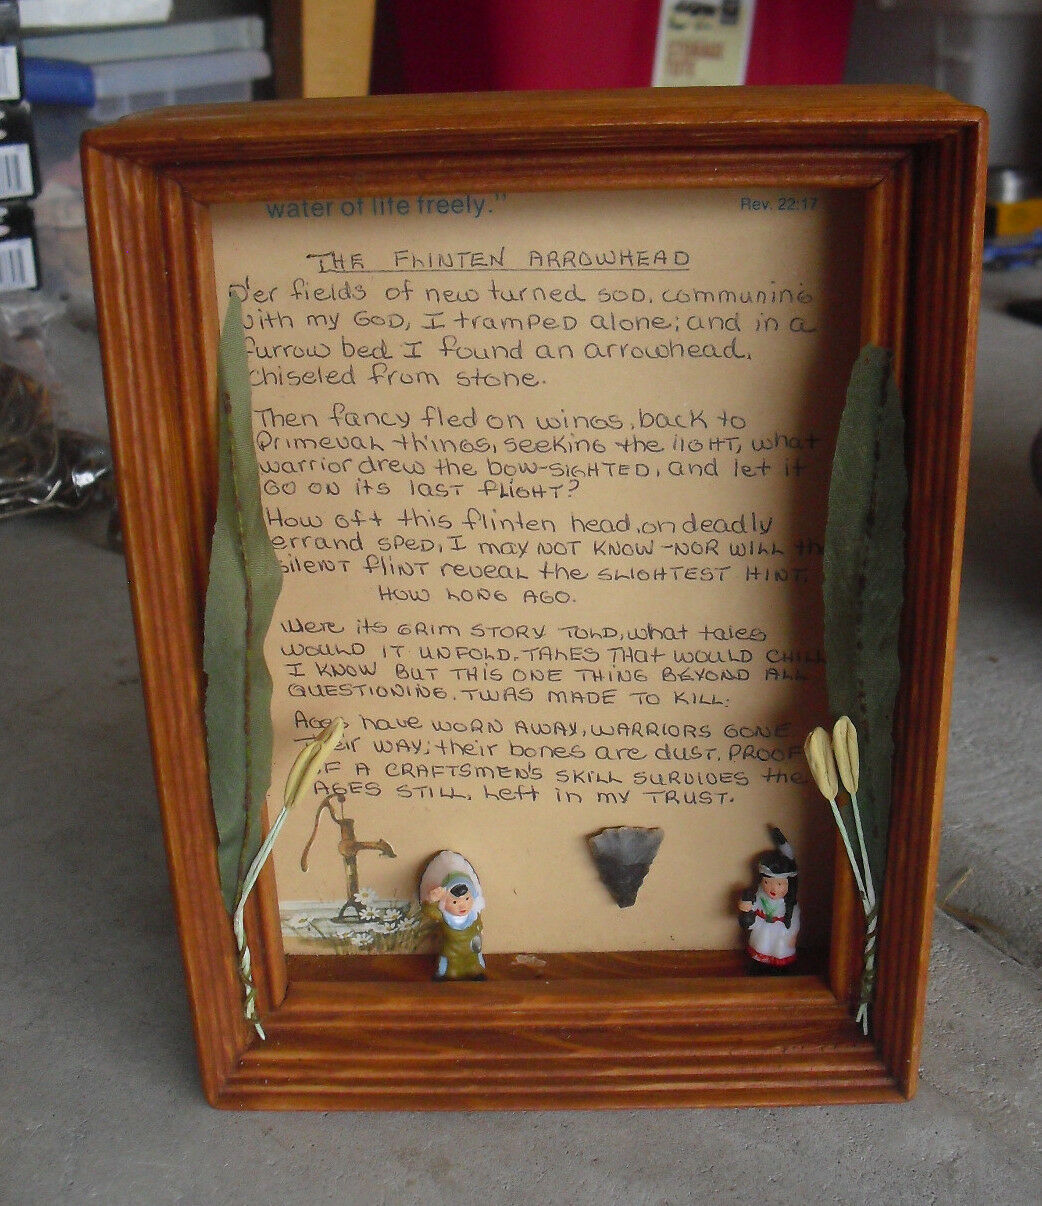 water of life freely."
Rev. 22:17
THE FLINTEN ARROWHEAD
O'er fields of new turned SOD, communing
with my GOD, I tramped alone; and in a
furrow bed I found an arrowhead,
chiseled from stone.
Then fancy fled on wings, back to
Primeval things, seeking the light, what
warrior drew the bow-SIGHTED, and let it
GO ON its last flight?
How oft this flinten head, on deadly
errand sped, I may NOT KNOW - NOR WILL th
silent flint reveal the SLIGHTEST HINT,
HOW LONG AGO.
Were its GRIM STORY TOLD, what tales
WOULD IT UNFOLD. TALES THAT WOULD CHILL
I KNOW BUT THIS ONE THING BEYOND ALL
QUESTIONING. TWAS MADE TO KILL:
Ages have WORN AWAY, WARRIORS GONE
Their WAY; their bones are dust. PROOF
OF A CRAFTSMEN'S SKILL SURVIVES the
AGES STILL, Left in my TRUST.